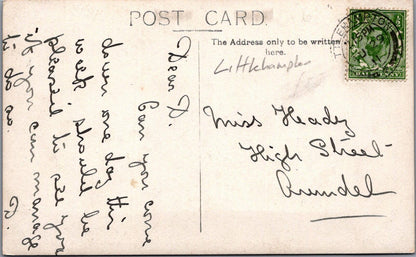 POST CARD
The Address only to be written
here.
Littlehampton
Dear D.
Can you come
down one day this
week should be
pleased to see you
if you can manage
to do so.
B.
Miss Heady
High Street
Arundel